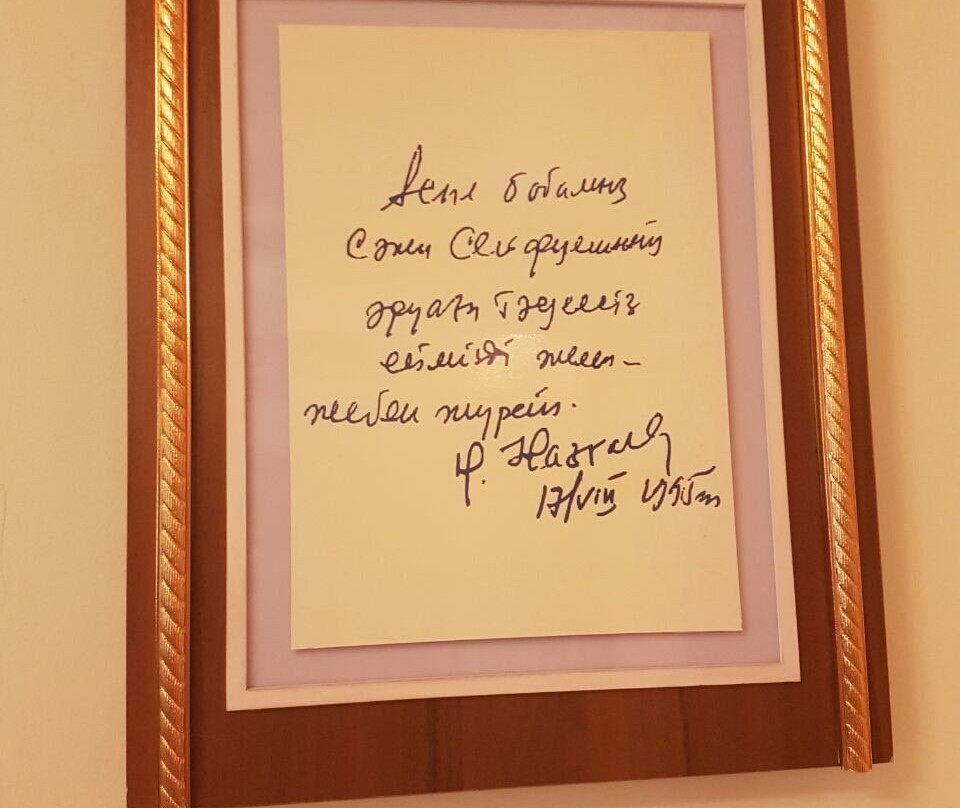 Асыл бабамыз
Сәкен Сейфуллиннің
әруағы Тәуелсіз
елімізді желеп-
жебеп жүрсін.
Н. Назарбаев
17/VIII 1995ж